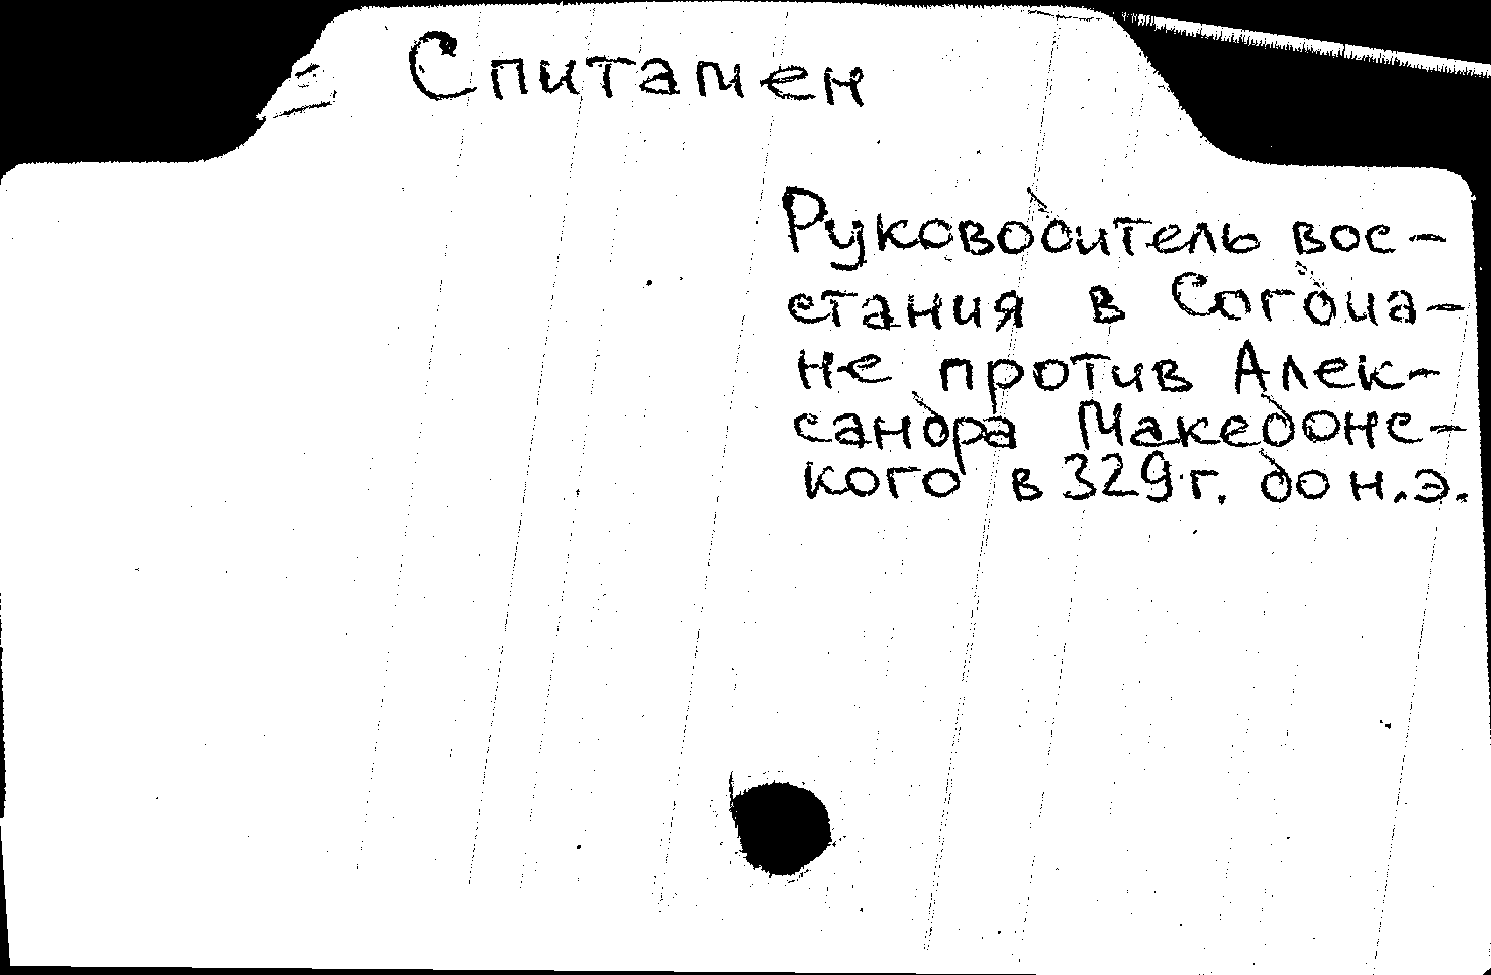 Спитамен
Руководитель вос-
стания в Согдиа-
не против Алек-
сандра Македонс-
кого в 329 г. до н.э.